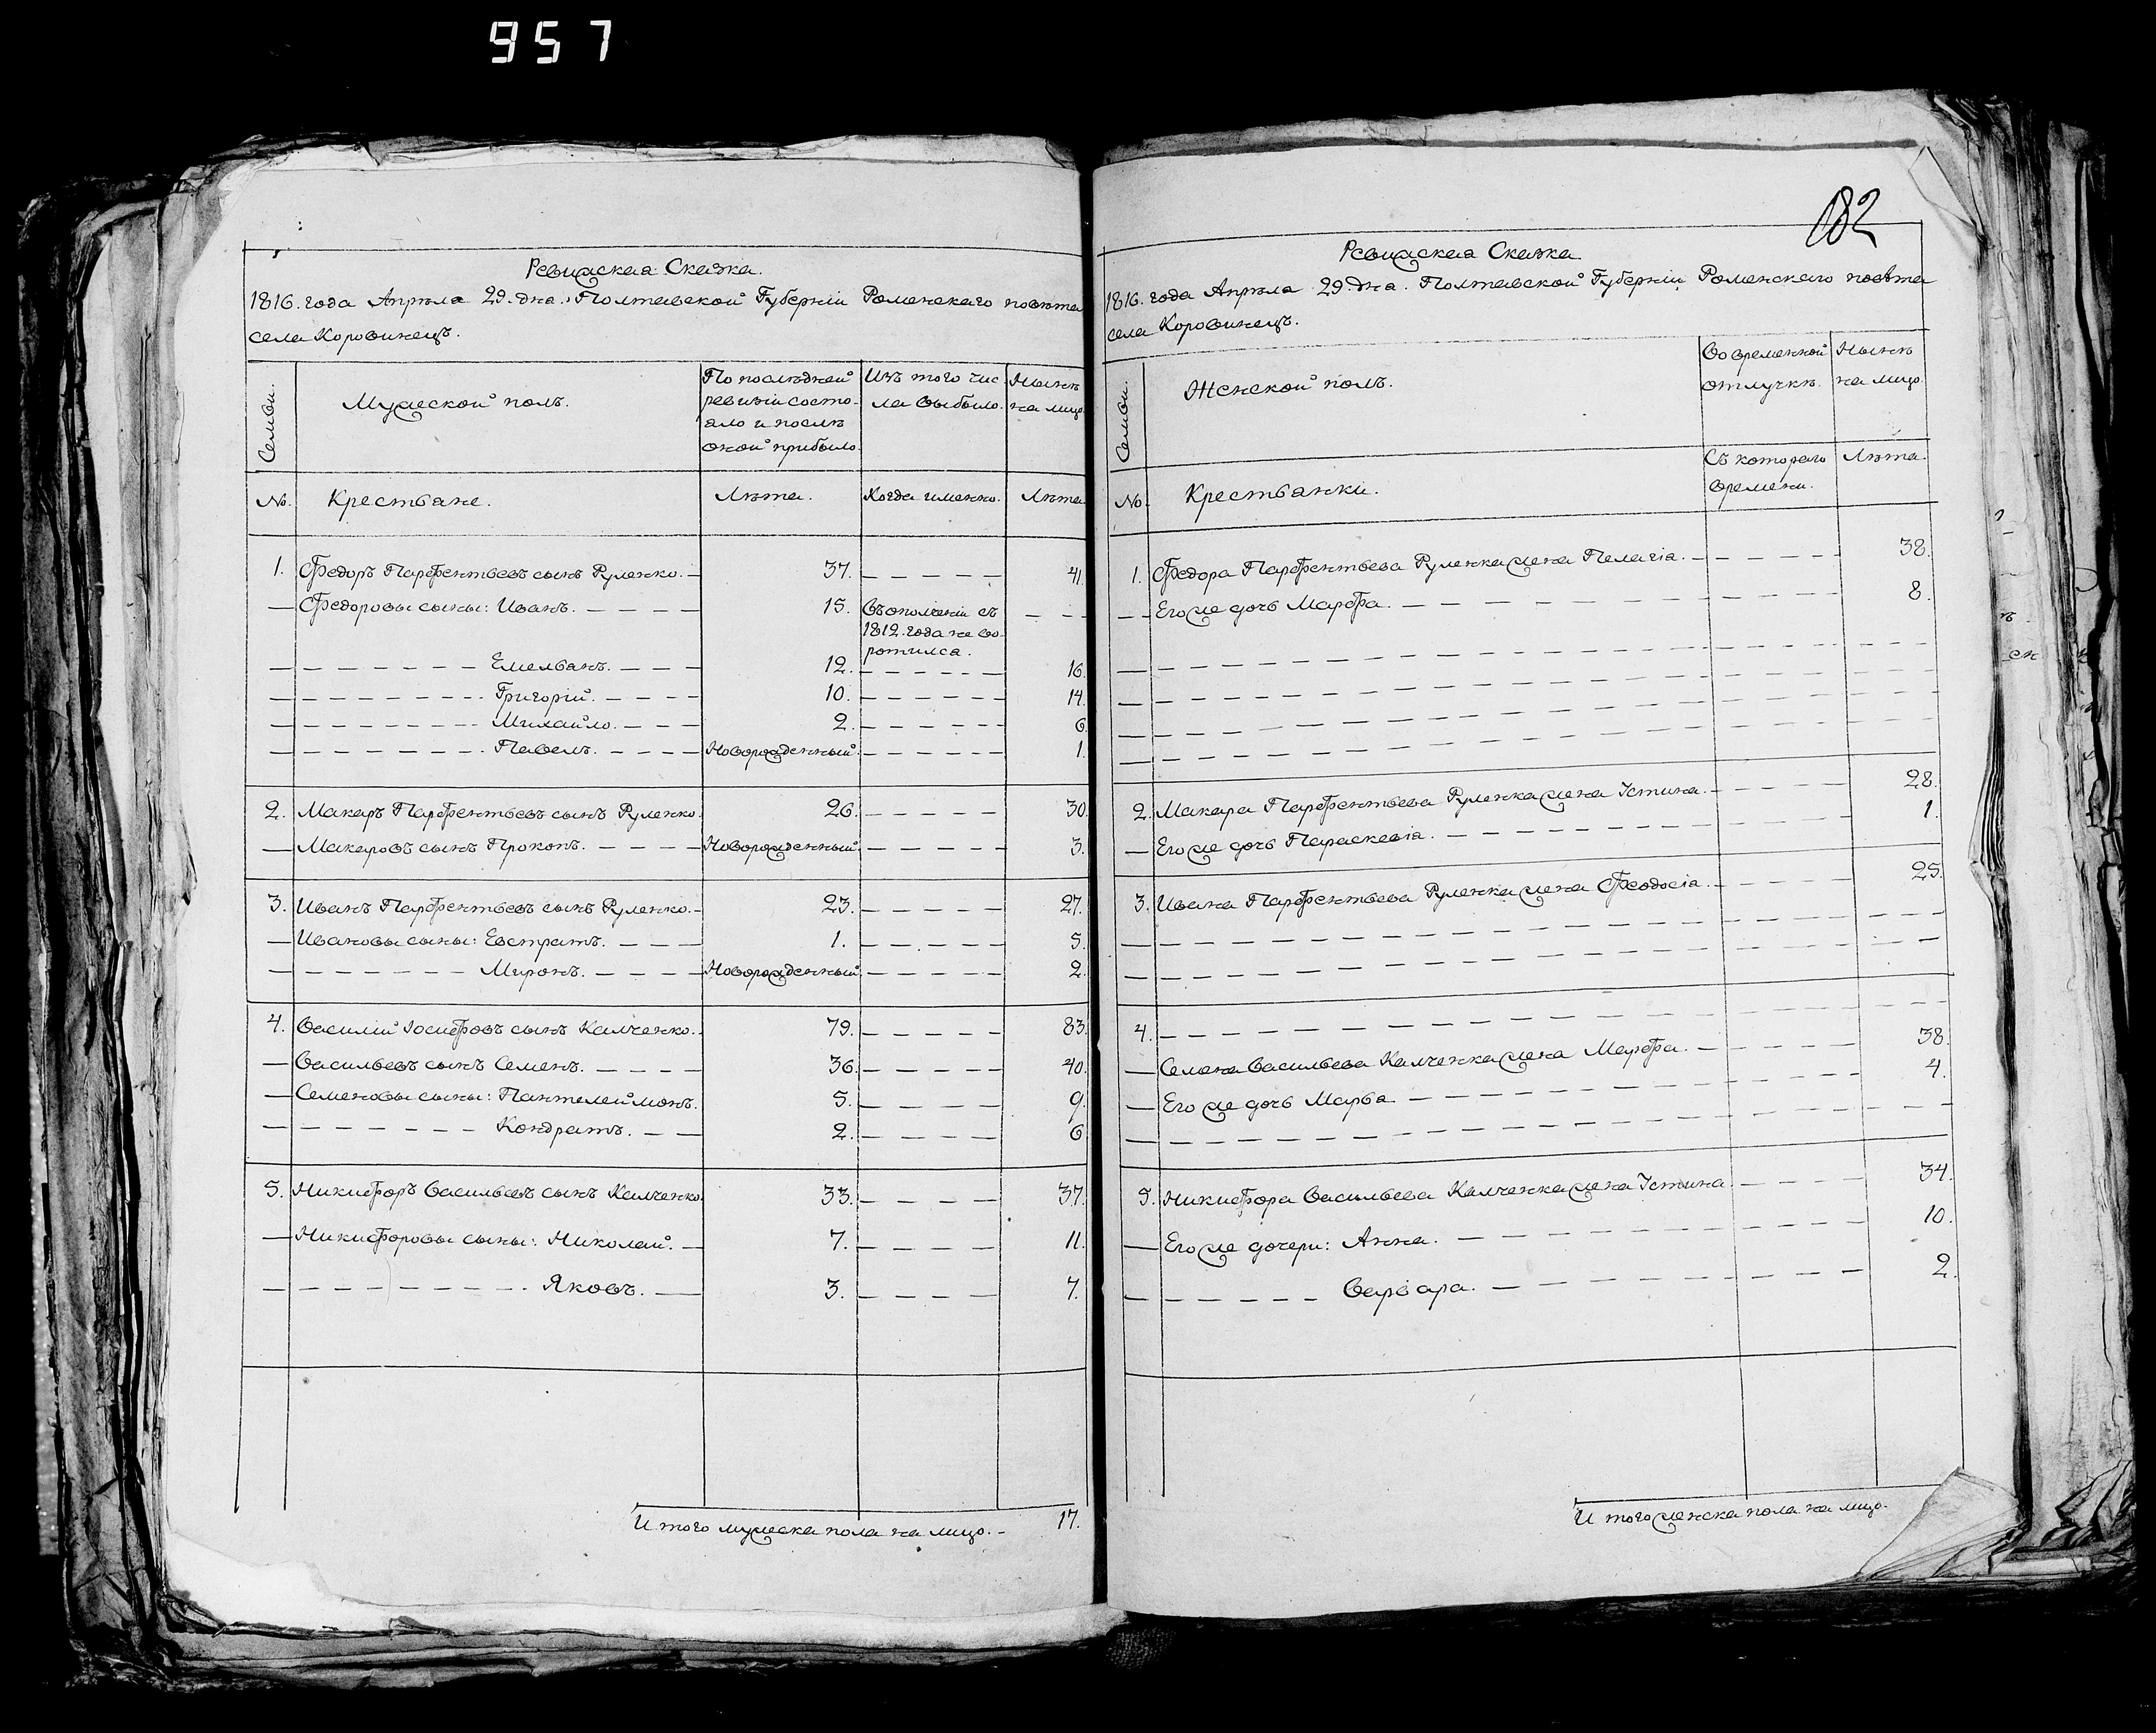 957
Ревижская Сказка.
1816. года Апрѣля 29. дня. Полтавской Губерніи Роменского повѣта
села Коровинецъ.
Семьи.
Мужеской полъ.
По послѣдней
ревизіи состо-
яло и послѣ
оной прибыло.
Изъ того чис
ла выбыло.
Нынѣ
на лицо.
No. Крестьяне. Лѣта. Когда именно. Лѣта.
1. Федоръ Парфентьевъ сынъ Руленко. — 37. — — — — 41.
— Федоровы сыны: Иванъ. — — — — 15. Въ ополченіи съ — — —
1812. года не во-
ротился.
— — — — — — — Емельянъ. — — — 12. — — — — — 16.
— — — — — — — Григорій. — — — — 10. — — — — — 14.
— — — — — — — Михайло. — — — 2. — — — — — 6.
— — — — — — — Павелъ. — — — — Новорожденный. — — — — — 1.
2. Макаръ Парфентьевъ сынъ Руленко. 26. — — — — — 30.
— Макаровъ сынъ Прокопъ. — — — — Новорожденный. — — — — — 3.
3. Иванъ Парфентьевъ сынъ Руленко. — 23. — — — — — 27.
— Ивановы сыны: Евстратъ. — — — 1. — — — — — 5.
— — — — — — — Миронъ. — — — — Новорожденный. — — — — — 2.
4. Василій Іосифовъ сынъ Калченко. 79. — — — — 83.
— Васильевъ сынъ Семенъ. — — — — 36. — — — — 40.
— Семеновы сыны: Пантелеймонъ. 5. — — — — 9.
— — — — — — — Кондратъ. — — 2. — — — — 6.
5. Никифоръ Васильевъ сынъ Калченко. 33. — — — — 37.
— Никифоровы сыны: Николай. — 7. — — — — 11.
— — — — — — — Яковъ. — 3. — — — — 7.
И того мужеска пола на лицо. — 17.
182
Ревижская Сказка
1816. года Апрѣла 29. дня. Полтавской Губерніи Роменского повѣта
села Коровинецъ.
Семьи.
Женской полъ.
Во временной
отлучкѣ.
Нынѣ
на лицо.
No. Крестьянки.
Съ котораго
времени.
Лѣта.
1. Федора Парфентьева Руленка жена Пелагіа. — — — — — 38.
— — Его же дочь Марфа. — — — — — — — 8.
2. Макара Парфентьева Руленка жена Устина. — — — — 28.
— Его же дочь Параскевіа. — — — — — — 1.
3. Ивана Парфентьева Руленка жена Феодосіа. — — — — 25.
4. — — — — — — — — — —
— Семена Васильева Калченка жена Марфа. — — — — 38.
— Его же дочь Марья — — — — — — 4.
5. Никифора Васильева Калченка жена Устина. — — — 34.
— Его же дочери: Анна. — — — — — — 10.
— — — — — — Варвара. — — — — — — 2.
И того женска пола на лицо.